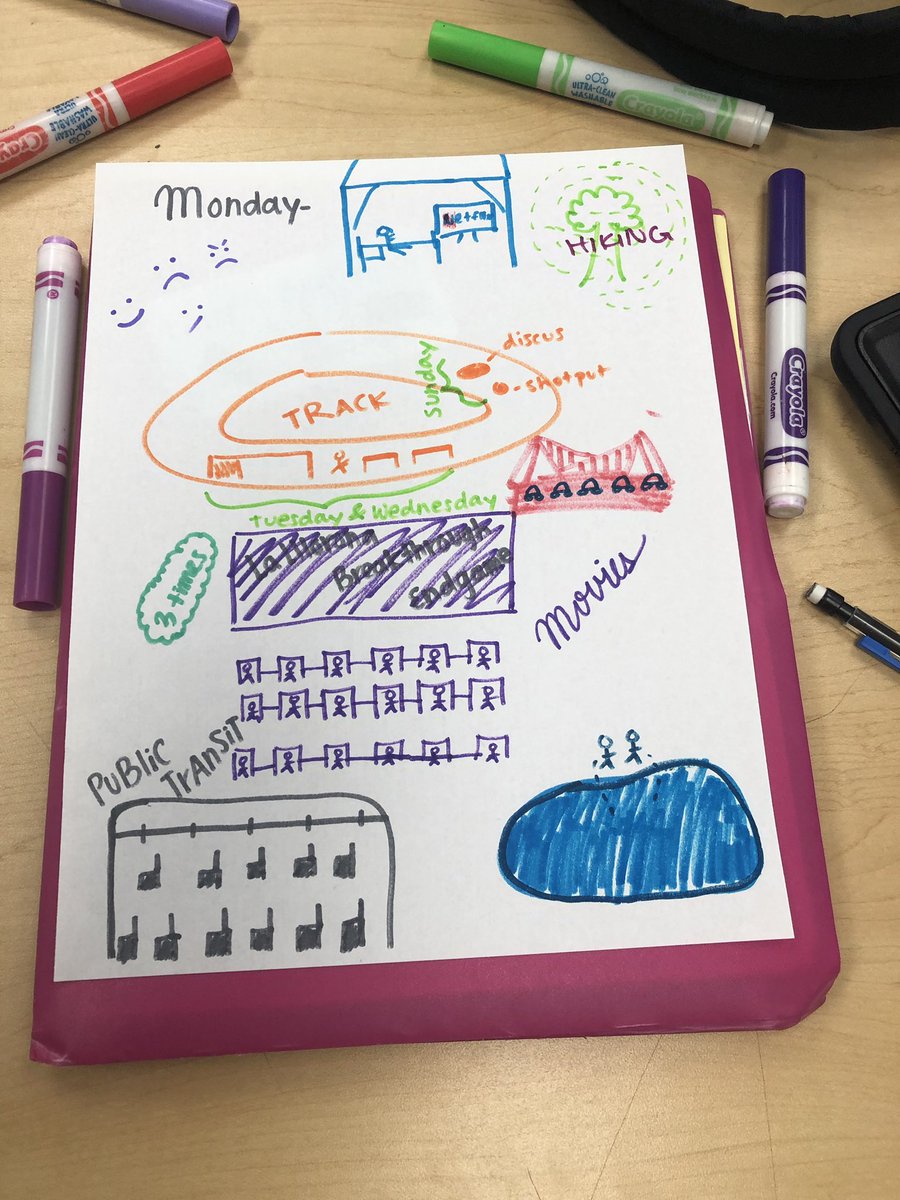 Crayola
ULTRA-CLEAN
WASHABLE
ULTRA-CLEAN
WASHABLE
Crayola
Monday-
HIKING
discus
shotput
Sunday
TRACK
Tuesday & Wednesday
3 times
La Llorona
Breakthrough
Endgame
Movies
PUBLIC
TrAnSiT
Crayola
Crayola.com